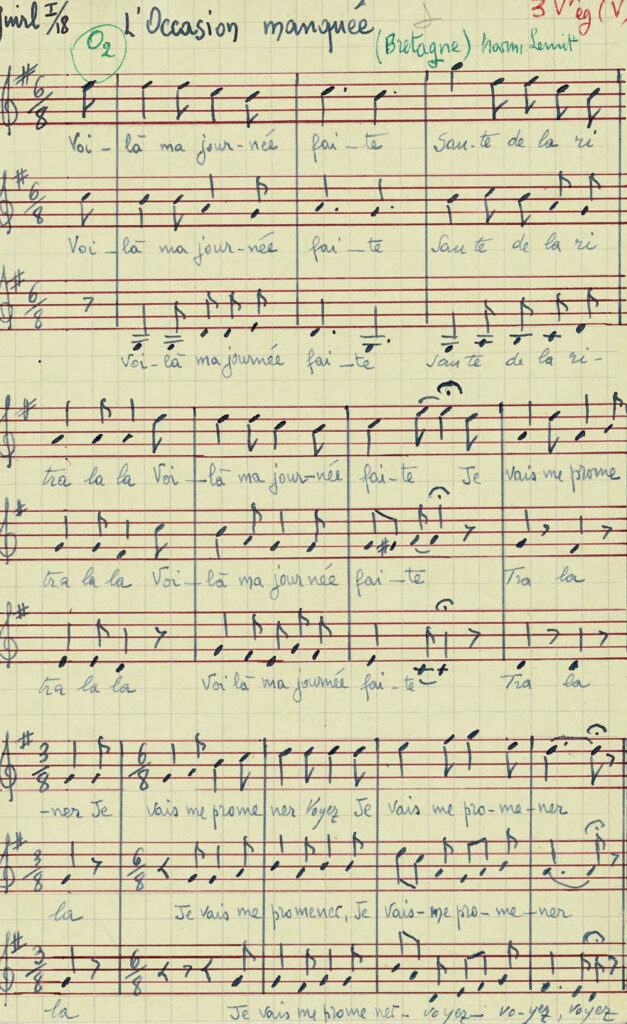 I/18 L'Occasion manquée 3 V
O2 (Bretagne) harm.
6/8 Voi - là ma jour-née fai-te Sau-te de la ri
6/8 Voi - là ma jour-née fai-te Sau te de la ri
6/8 Voi-là ma journée fai-te Sau te de la ri-
tra la la Voi - là ma jour-née fai-te Je vais me prome
tra la la Voi - là ma jour née fai-te Tra la
tra la la Voi là ma journée fai-te Tra la
3/8 6/8 -ner Je vais me prome ner Voyez Je vais me pro-me-ner
3/8 6/8 la Je vais me promener, Je vais-me pro-me-ner
3/8 6/8 -la Je vais me prome ner- voyez- vo-yez, voyez